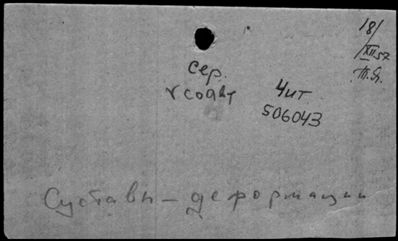 18/
XII 57
Т.Я.
Сер.
Чит
506043
Суставы – деформации